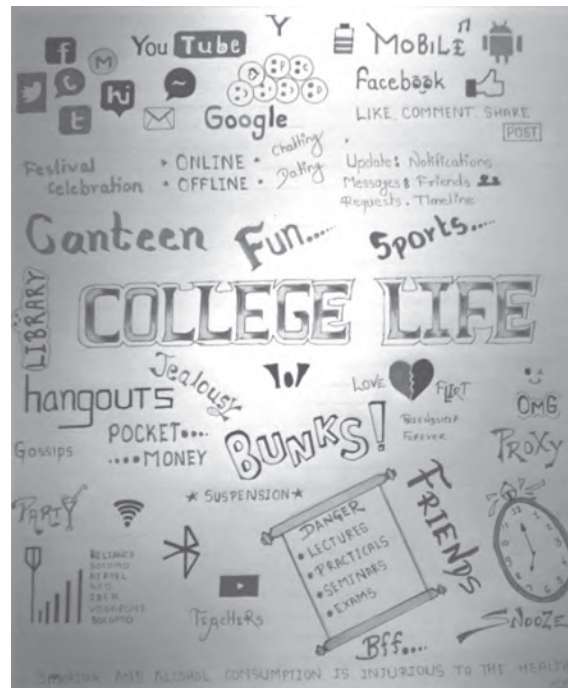 You Tube
Y
MOBILE
f
M
hi
t
Google
Facebook
LIKE. COMMENT. SHARE
POST
Festival Celebration
• ONLINE •
• OFFLINE •
Chatting
Dating
Updates Notifications
Messages Friends
Requests. Timeline
Canteen
Fun.....
Sports.....
LIBRARY
COLLEGE LIFE
hangouts
Jealousy
LOVE
FLIRT
FRIENDSHIP
FOREVER
OMG
Gossips
POCKET....
....MONEY
BUNKS!
PROXY
PARTY
★ SUSPENSION ★
FRIENDS
DANGER
• LECTURES
• PRACTICALS
• SEMINARS
• EXAMS
RELIANCE
DOCOMO
AIRTEL
IDEA
VODAFONE
TEACHERS
SNOOZE
Bff....
SMOKING AND ALCOHOL CONSUMPTION IS INJURIOUS TO THE HEALTH